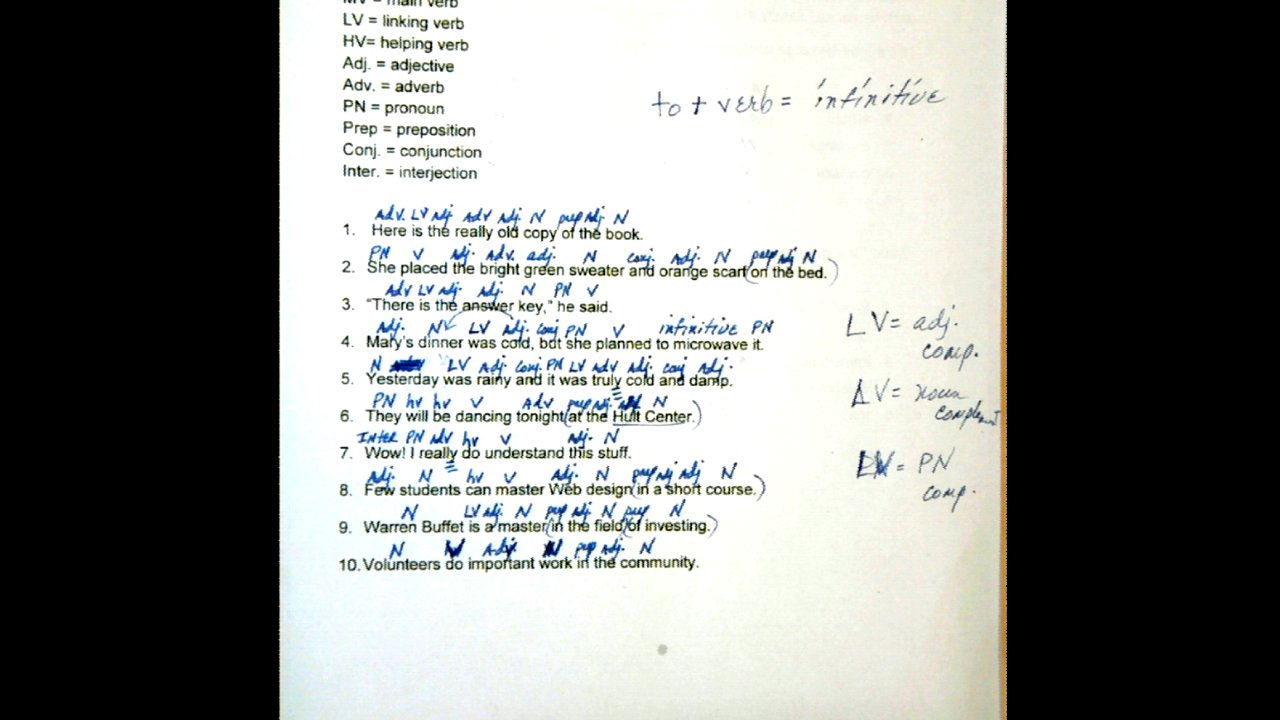 MV = main verb
LV = linking verb
HV= helping verb
Adj. = adjective
Adv. = adverb
PN = pronoun
Prep = preposition
Conj. = conjunction
Inter. = interjection
to + verb = infinitive
Adv. LV adj. adv adj. N prep adj. N
1. Here is the really old copy of the book.
PN V adj. Adv. adj. N conj. Adj. N prep adj N
2. She placed the bright green sweater and orange scarf (on the bed.)
Adv LV adj. adj. N PN V
3. “There is the answer key,” he said.
Adj. N LV adj. conj PN V infinitive PN
4. Mary's dinner was cold, but she planned to microwave it.
N LV Adj. conj. PN LV adv adj. conj Adj.
5. Yesterday was rainy and it was truly cold and damp.
PN hv hv V Adv prep adj. N
6. They will be dancing tonight (at the Hult Center.)
Inter PN adv hv V adj. N
7. Wow! I really do understand this stuff.
Adj. N hv V Adj. N prep adj adj N
8. Few students can master Web design (in a short course.)
N LV adj. N prep adj. N prep N
9. Warren Buffet is a master (in the field) (of investing.)
N V Adj. N prep adj. N
10. Volunteers do important work in the community.
LV= adj.
comp.
LV= noun
complement
LV= PN
comp.